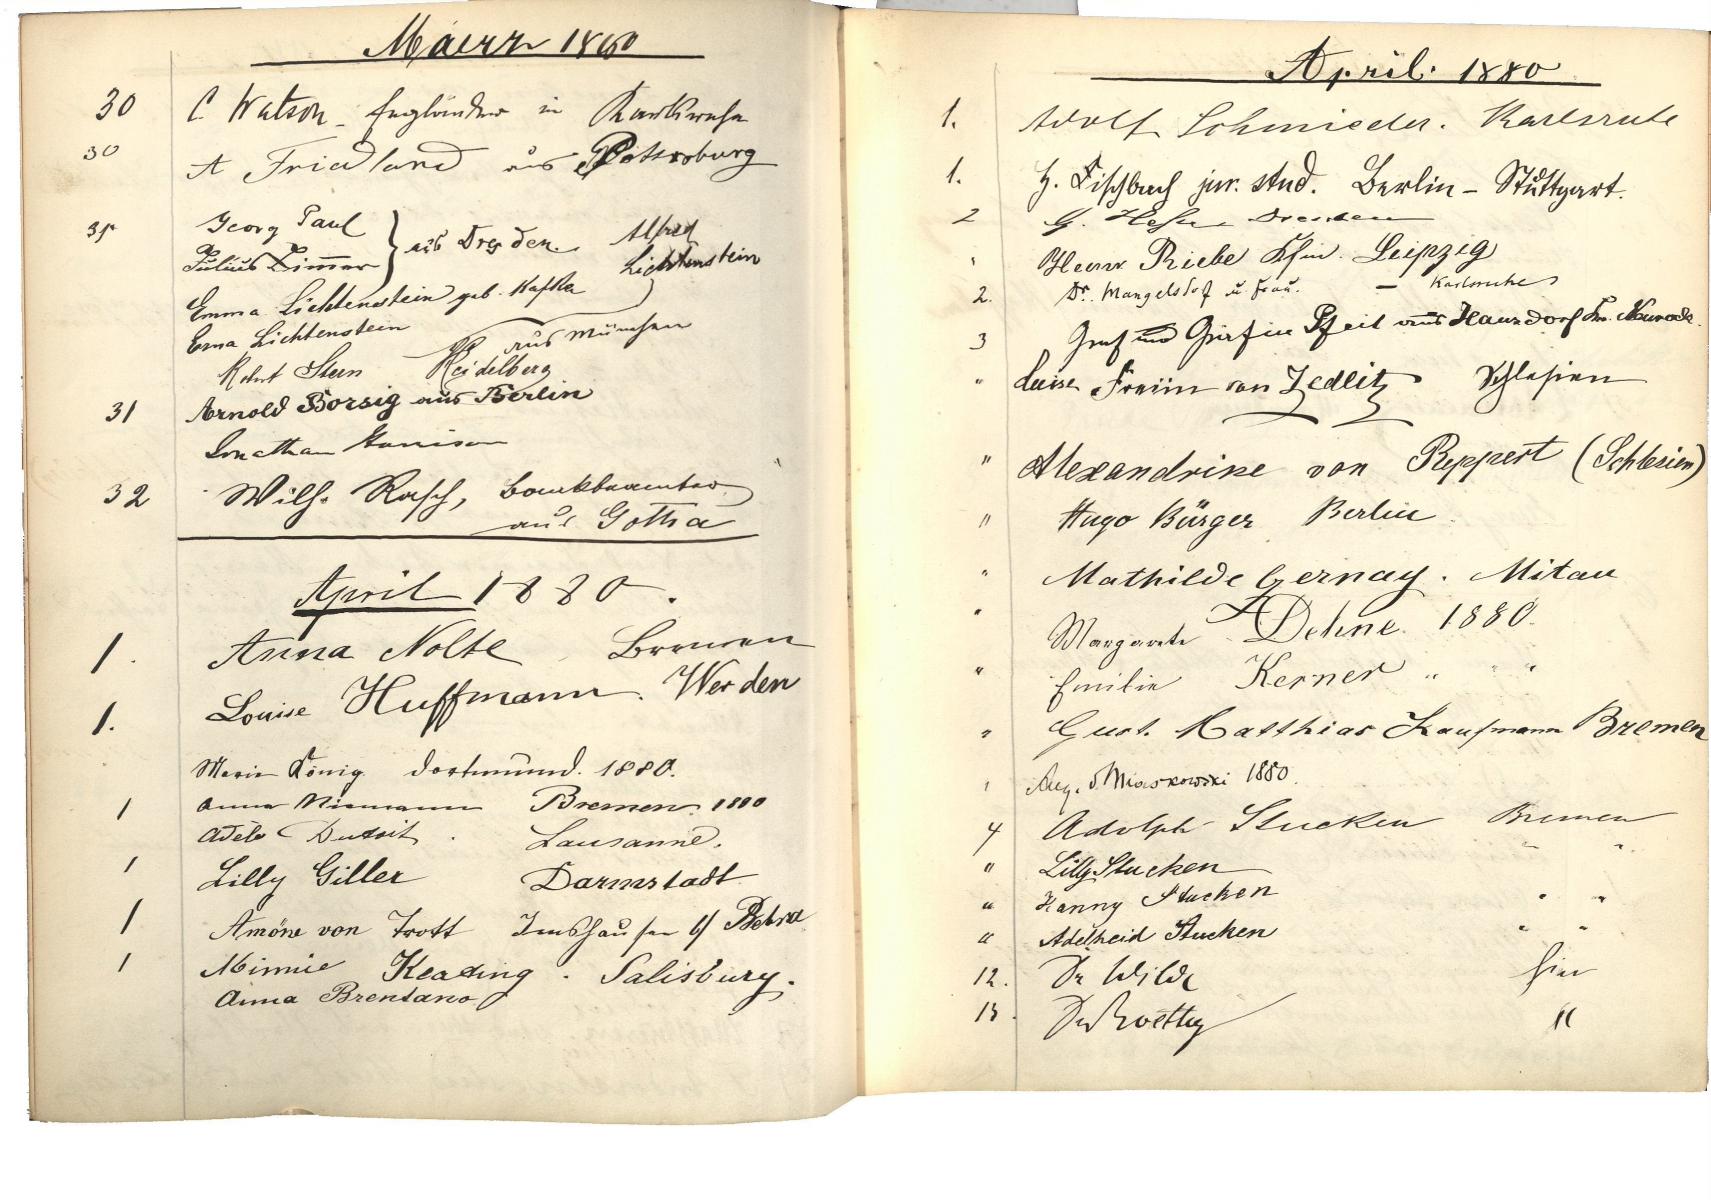 Maerz 1880
30 C Watson - Engländer in Karlsruhe
30 A Friedland aus Petersburg
31 Georg Paul
Julius Zimmer } aus Dresden Alfred Lichtenstein
Emma Lichtenstein geb. Kafka
Erna Lichtenstein aus München
Robert Stern Heidelberg
31 Arnold Borsig aus Berlin
Jonathan Harrison
32 Wilh. Rasch, Bankbeamter
aus Gotha
April 1880.
1. Anna Nolte Bremen
1. Louise Huffmann. Werden
Marie König dortmund. 1880.
1 Anna Niemann Bremen. 1880
Adèle Dutoit. Lausanne.
1 Lilly Giller Darmstadt
1 Amöne von Trott Imshausen b/ Bebra
1 Minnie Keading. Salisbury.
Anna Brentano
April. 1880
1. Adolf Schmieder. Karlsruhe
1. H. Fischbach jur. stud. Berlin - Stuttgart.
2 G. Dresden
Riebe Kfm. Leipzig
2. Dr. Mangelsdorf u. Frau. - Karlsruhe
3 Graf und Gräfin Pfeil aus Hausdorf Kr. Neurode.
" Luise Freiin von Zedlitz Schlesien
" Alexandrine von Reppert (Schlesien)
" Hugo Bürger Berlin
" Mathilde Gernay. Mitau
" Margarete Dehne. 1880.
" Emilie Kerner " "
" Gust. Matthias Kaufmann Bremen
Aug. v. Miaskowski 1880.
4 Adolph Stucken Bremen
" Lilly Stucken " "
" Hanny Stucken " "
" Adelheid Stucken " "
12. Dr Wilde hier
13. Dr "